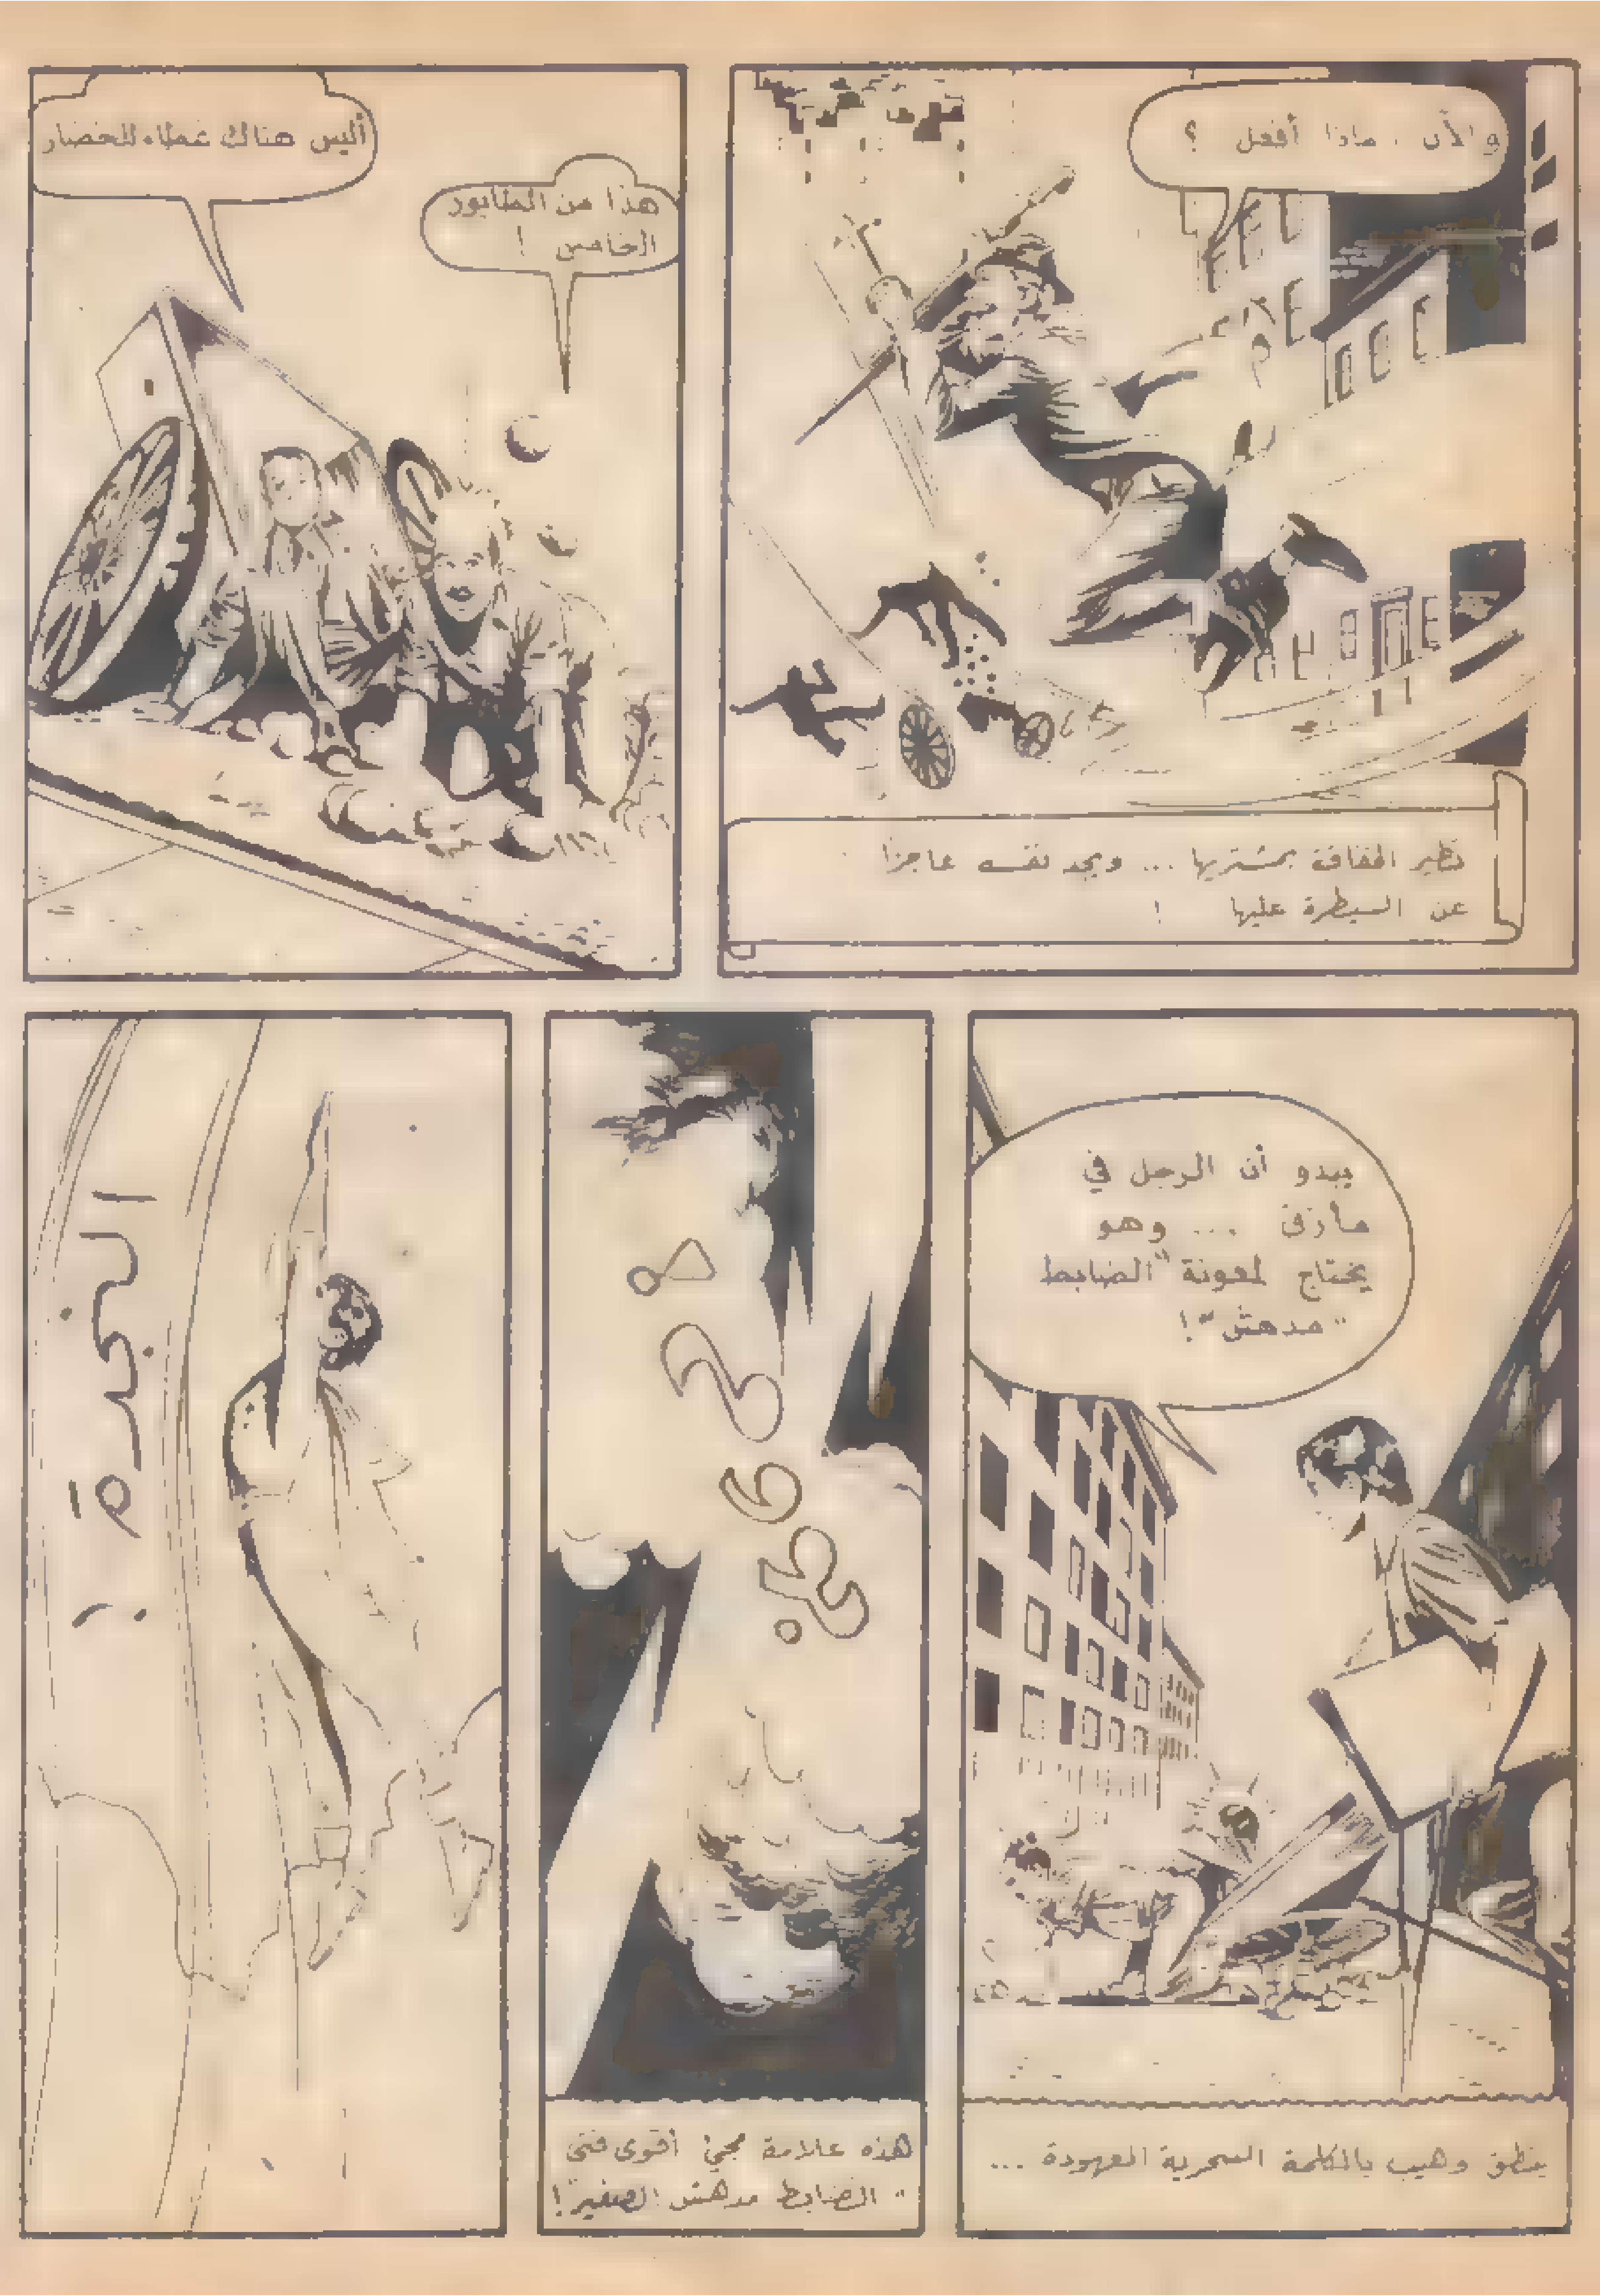 والآن ، ماذا أفعل ؟
تطير الخفاقة بمشتريها ... ويجد نفسه عاجزا
عن السيطرة عليها !
أليس هناك غطاء للخضار
هذا من الطابور
الخامس !
يبدو أن الرجل في
مأزق ... وهو
يحتاج لمعونة "الضابط
مدهش" !
ينطق وهيب بالكلمة السحرية المعهودة ...
هذه علامة مجيئ أقوى فتى
"الضابط مدهش الصغير" !
النجدة !